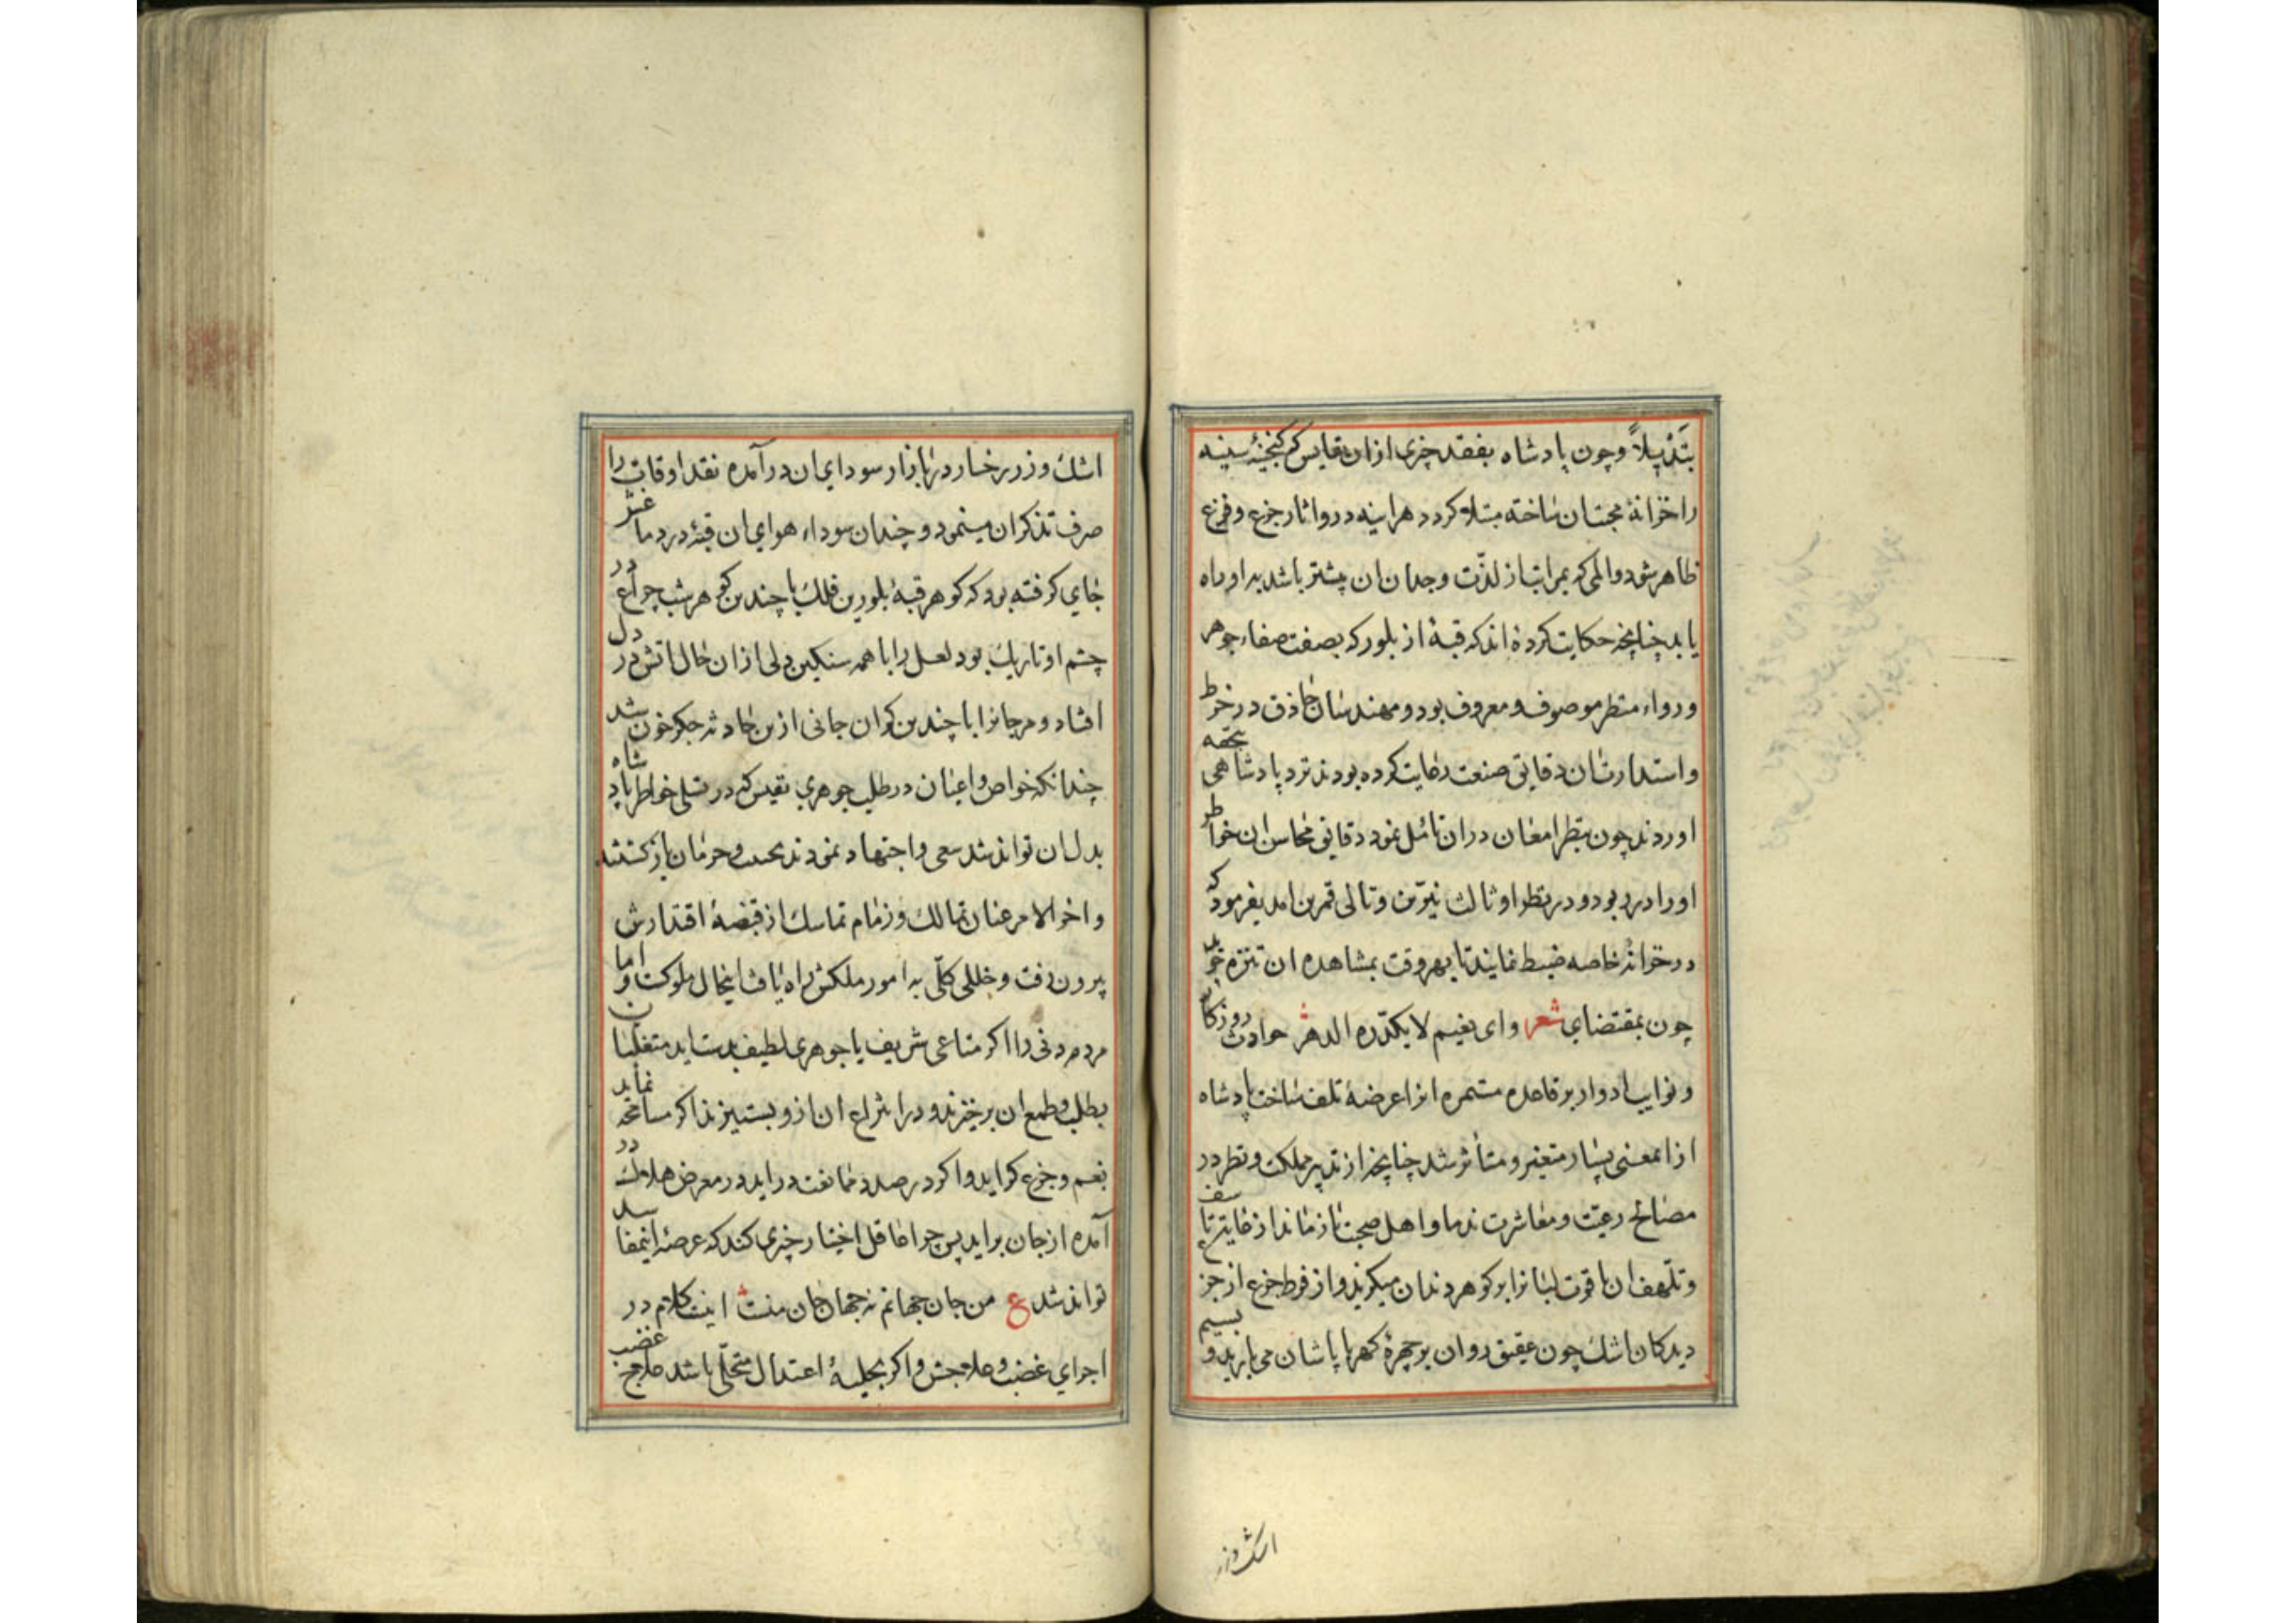 تبدیلاً و چون پادشاه بفقد چیزی ازان نفایس که کنجینهٔ سینه
را خزانهٔ محبت ان ساخته مبتلا کردد هراینه درو اثار جزع و فزع
ظاهر شود و المی که بمراتب از لذّت وجدان ان بیشتر باشد به او راه
یابد چنانچه حکایت کرده اند که قبهٔ از بلور که بصفت صفاء جوهر
و رواء منظر موصوف و معروف بود و مهندسان حاذق در خرط
و استدارت ان دقایق صنعت رعایت کرده بودند نزد پادشاهی بتحفه
اوردند چون بنظر امعان دران تامل نمود دقایق محاسن ان خواطر
او را در ربود و در نظر او ثالث نیّرین و تالی قمرین امد بفرمود که
در خزانهٔ خاصه ضبط نمایند تا بهر وقت بمشاهده ان تنزه جوید
چون بمقتضای شعر و ای نعیم لا یکدّره الدهر حوادث روزکار
و نوایب ادوار بر قاعده مستمره انرا عرضهٔ تلف ساخت پادشاه
ازا نمعنی بسیار متغیر و متأثر شد چنانچه از تدبیر مملکت و نظر در
مصالح رعیّت و معاشرت ندما و اهل صحبت باز ماند از غایت تاسف
و تلهف ان یاقوت لبانرا بر کوهر دندان میکزید و از فرط جزع از جزع
دیدکان اشك چون عقیق روان بر چهرهٔ کهربا پاشان می بارید و بسیم
اشك و زر
اشك و زر رخسار در بازار سودای ان درآمده نقد اوقات را
صرف تذکر ان مینمود و چندان سوداء هوای ان قبّه در دماغش
جای کرفته بود که کوهر قبهٔ بلورین فلك با چندین کوهر شب چراغ در
چشم او تاریك بود لعل را با همه سنکین دلی ازان حال اتش در دل
افتاد و مرجانرا با چندین کران جانی ازین حادثه جکر خون شد
چندانکه خواص و اعیان در طلب جوهری نفیس که در تسلی خواطر پادشاه
بدل ان تواند شد سعی و اجتهاد نمودند بخیبت و حرمان باز کشتند
و اخر الامر عنان تمالك و زمام تماسك از قبضهٔ اقتدارش
بیرون رفت و خللی کلّی به امور ملکش راه یافت اینحال ملوکست و اما
مردم دنی را اکر متاعی شریف یا جوهری لطیف بدست اید متغلبان
بطلب و طمع ان برخیزند و در انتزاع ان ازو بستیزند اکر مسامحه نماید
بغم و جزع کراید و اکر در صدد ممانعت در اید در معرض هلاك
آمده از جان براید پس چرا عاقل اختیار چیزی کند که عرصهٔ اینمفاسد
تواند شد ع من جان جهانم نه جهان جان منست اینست کلام در
اجرای غضب و علاجش و اکر بحلیهٔ اعتدال متحلّی باشد علاج غضب